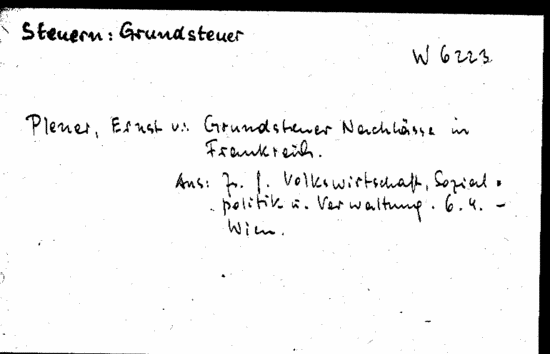 Steuern: Grundsteuer
W 6223
Plener, Ernst v.: Grundsteuer Nachlässe in
Frankreich.
Aus: Z. f. Volkswirtschaft, Sozial-
politik u. Verwaltung. 6.4. -
Wien.